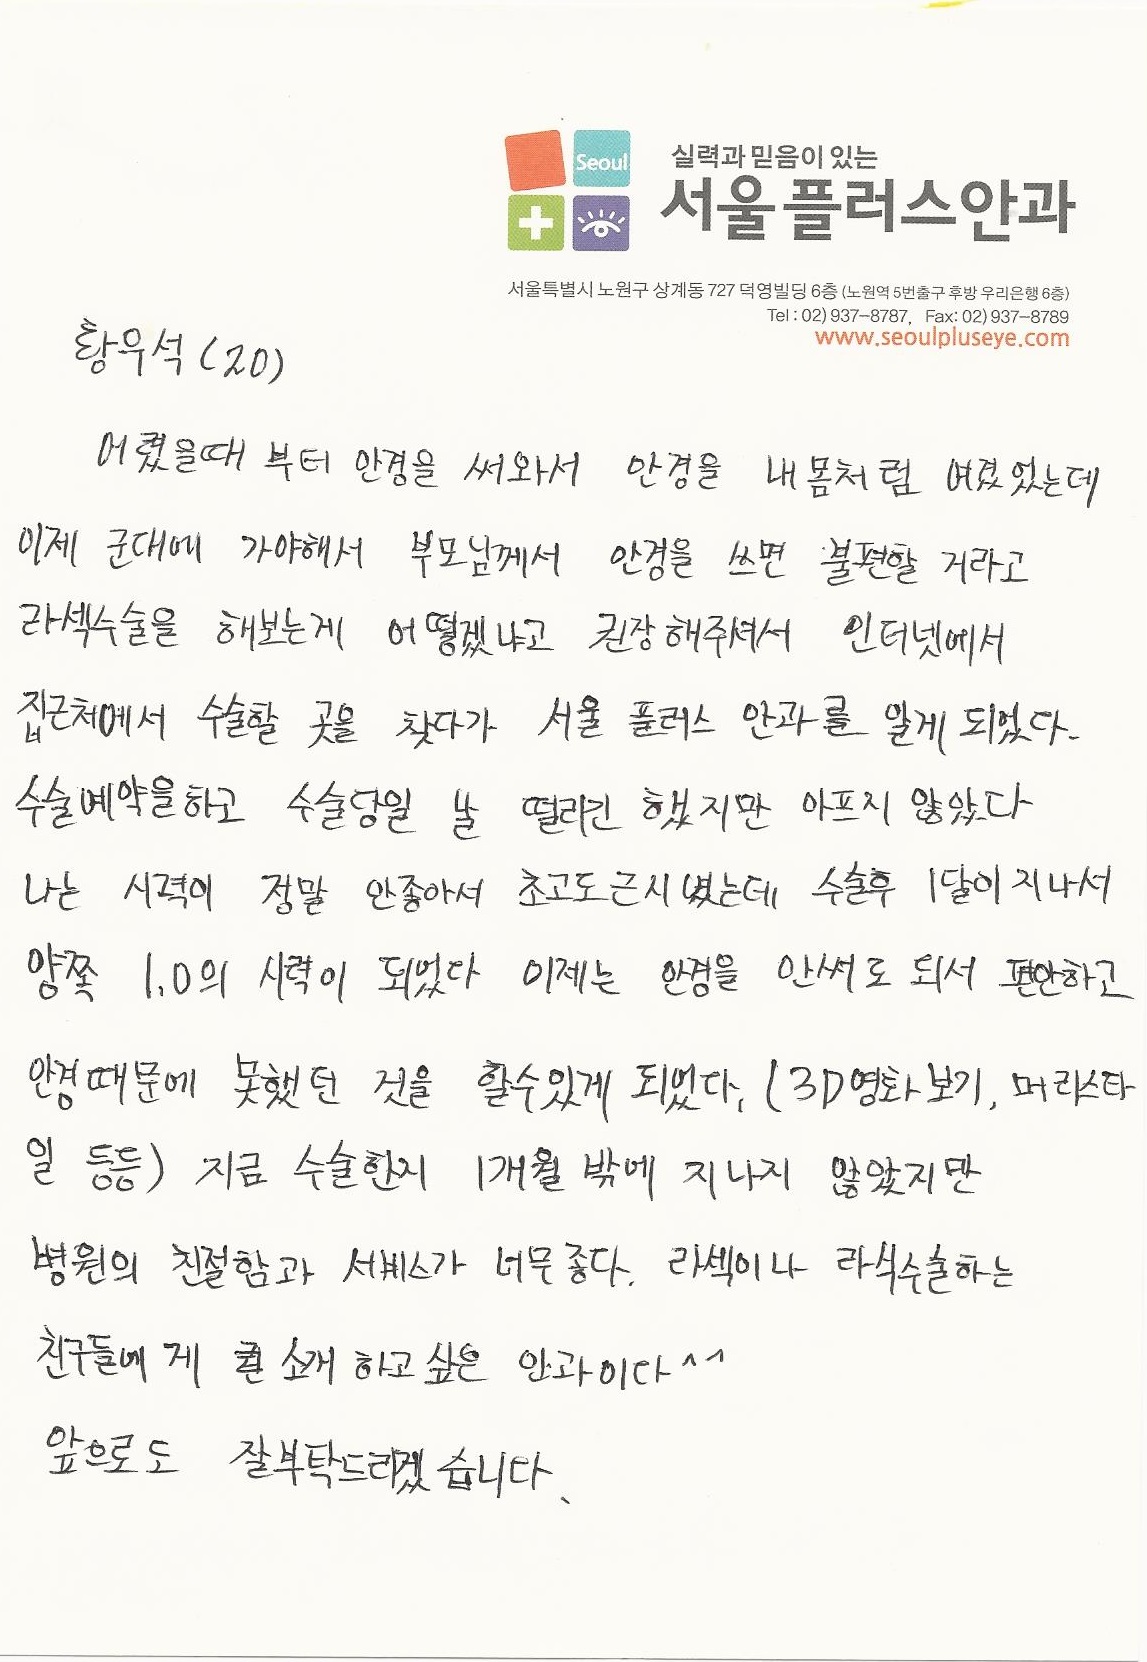 Seoul
실력과 믿음이 있는
서울플러스안과
서울특별시 노원구 상계동 727 덕영빌딩 6층 (노원역 5번출구 후방 우리은행 6층)
Tel : 02) 937-8787, Fax: 02) 937-8789
www.seoulpluseye.com
황우석 (20)
어렸을때 부터 안경을 써와서 안경을 내몸처럼 여겼었는데
이제 군대에 가야해서 부모님께서 안경을 쓰면 불편할 거라고
라섹수술을 해보는게 어떻겠냐고 권장해주셔서 인터넷에서
집근처에서 수술할 곳을 찾다가 서울 플러스 안과를 알게 되었다.
수술예약을하고 수술당일 날 떨리긴 했지만 아프지 않았다
나는 시력이 정말 안좋아서 초고도근시였는데 수술후 1달이 지나서
양쪽 1.0의 시력이 되었다 이제는 안경을 안써도 되서 편안하고
안경때문에 못했던 것을 할수있게 되었다. (3D영화보기, 머리스타
일 등등) 지금 수술한지 1개월 밖에 지나지 않았지만
병원의 친절함과 서비스가 너무좋다. 라섹이나 라식수술하는
친구들에게 꼭 소개하고싶은 안과이다^^
앞으로도 잘부탁드리겠습니다.